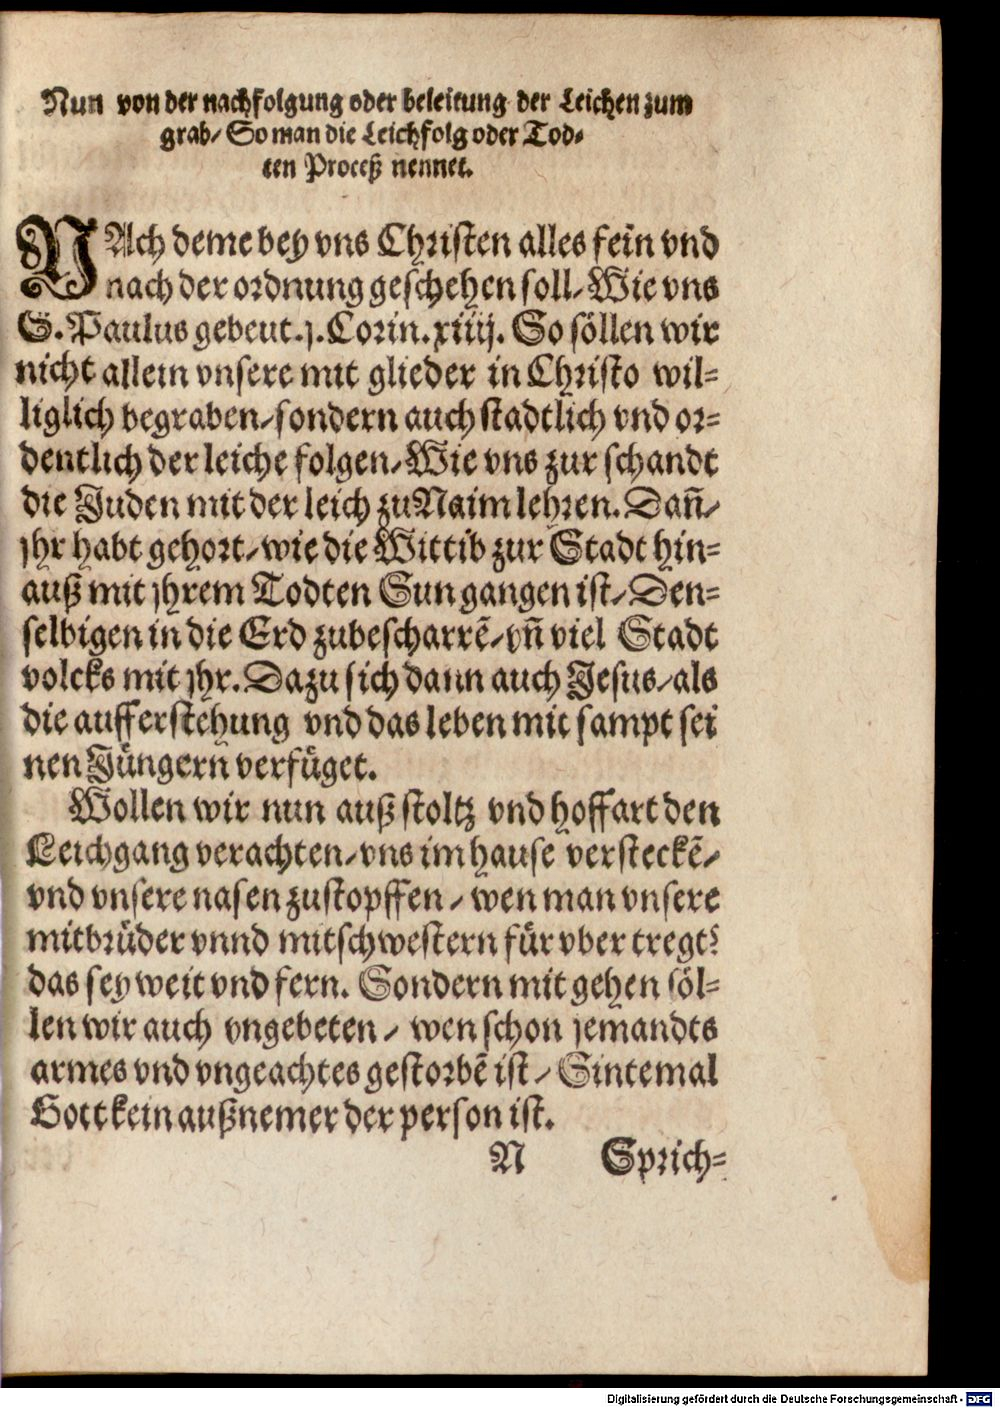 Nun von der nachfolgung oder beleitung der Leichen zum
grab/ So man die Leichfolg oder Tod-
ten Proceß nennet.
NAch deme bey vns Christen alles fein vnd
nach der ordnung geschehen soll/ Wie vns
S. Paulus gebeut. j. Corin. xiiij. So söllen wir
nicht allein vnsere mit glieder in Christo wil-
liglich begraben/ sondern auch stadtlich vnd or-
dentlich der leiche folgen/ Wie vns zur schandt
die Juden mit der leich zu Naim lehren. Dañ/
jhr habt gehort/ wie die Wittib zur Stadt hin-
auß mit jhrem Todten Sun gangen ist/ Den-
selbigen in die Erd zubescharrē/ vñ viel Stadt
volcks mit jhr. Dazu sich dann auch Jesus/ als
die aufferstehung vnd das leben mit sampt sei
nen Jüngern verfüget.
Wollen wir nun auß stoltz vnd hoffart den
Leichgang verachten/ vns im hause versteckē/
vnd vnsere nasen zustopffen/ wen man vnsere
mitbrüder vnnd mitschwestern für vber tregt?
das sey weit vnd fern. Sondern mit gehen söl-
len wir auch vngebeten/ wen schon jemandts
armes vnd vngeachtes gestorbē ist/ Sintemal
Gott kein außnemer der person ist.
N Sprich-
Digitalisierung gefördert durch die Deutsche Forschungsgemeinschaft - DFG